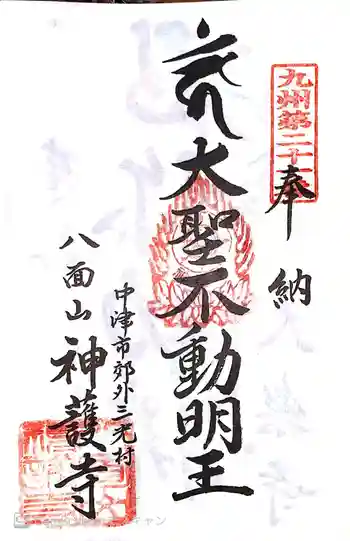 九州第二十
奉納
大聖不動明王
中津市郊外三光村
八面山
神護寺